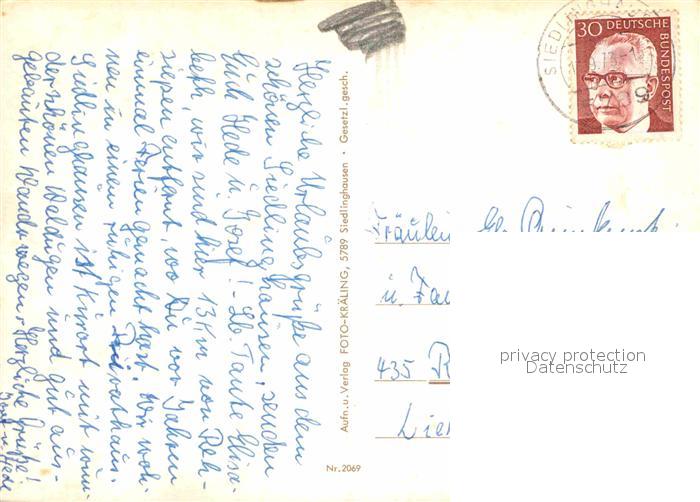 Herzliche Urlaubsgrüße aus dem
schönen Siedlinghausen, senden
Euch Hede u. Josef! - Lb. Tante Elisa-
beth, wir sind hier 13 Km von Reh-
siepen entfernt, wo Du vor Jahren
einmal Ferien gemacht hast. Wir woh-
nen in einem ruhigen Privathaus.
Siedlinghausen ist Kurort mit wun-
derschönen Waldungen und gut aus-
gebauten Wanderwegen. Herzliche Grüße!
Josef u. Hede
Aufn. u. Verlag FOTO-KRÄLING, 5789 Siedlinghausen · Gesetzl. gesch.
Nr. 2069
SIEDLINGHAUSEN
30 DEUTSCHE
BUNDESPOST
Fräulein
u.
435 R
privacy protection
Datenschutz